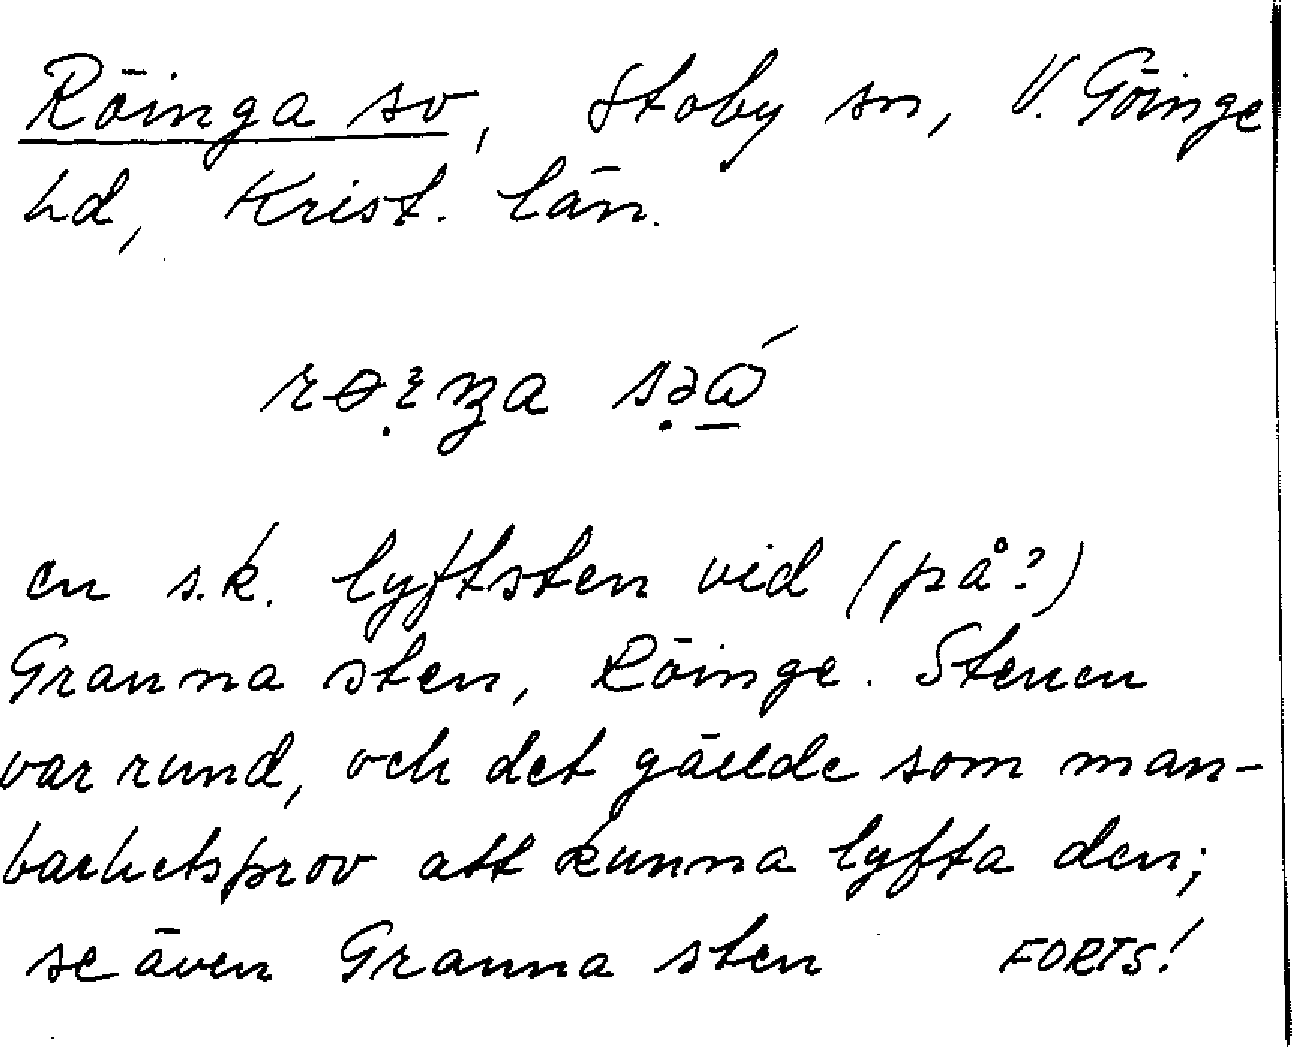 Röinga so, Stoby sn, V. Göinge
hd, Krist. län.
en s.k. lyftsten vid (på?)
Granna sten, Röinge. Stenen
var rund, och det gällde som man-
barhetsprov att kunna lyfta den;
se även Granna sten FORTS!